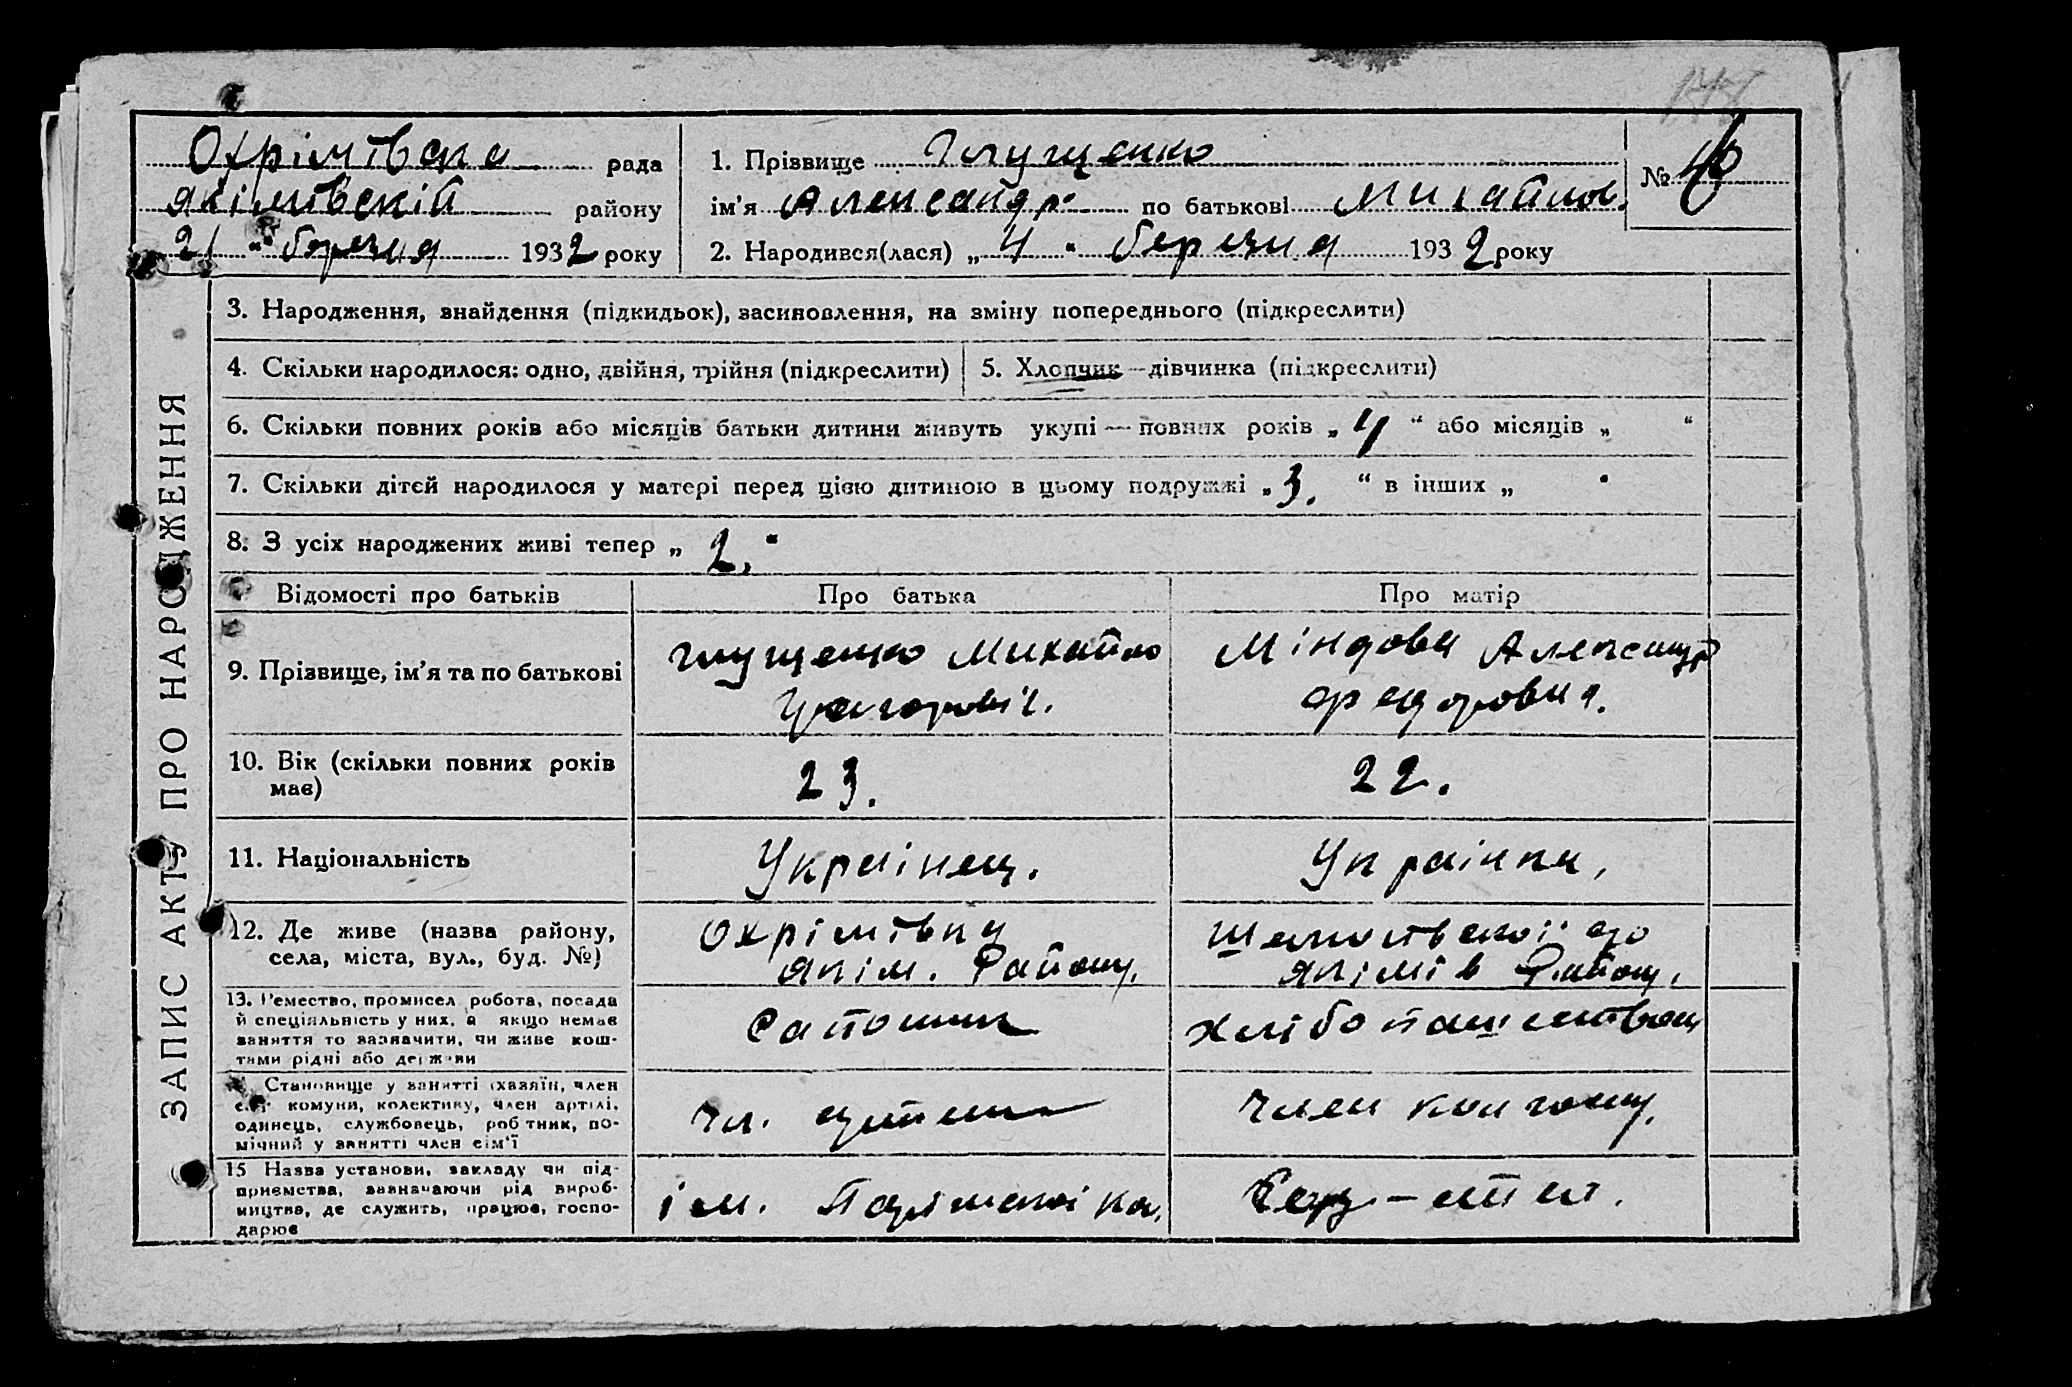 Охрімівска рада
Якімівскій району
„21“ березня 1932 року
1. Прізвище Глущенко
ім’я Александр по батькові Михайлов.
2. Народився(лася) „4“ березня 1932 року
№
ЗАПИС АКТУ ПРО НАРОДЖЕННЯ
3. Народження, знайдення (підкидьок), засиновлення, на зміну попереднього (підкреслити)
4. Скільки народилося: одно, двійня, трійня (підкреслити)
5. Хлопчик—дівчинка (підкреслити)
6. Скільки повних років або місяців батьки дитини живуть укупі — повних років „4“ або місяців „ “
7. Скільки дітей народилося у матері перед цією дитиною в цьому подружжі „3.“ в інших „ “
8. З усіх народжених живі тепер „2.“
Відомості про батьків
Про батька
Про матір
9. Прізвище, ім’я та по батькові
Глущенко Михайло
Григоровіч.
Міндова Александр
Федоровна.
10. Вік (скільки повних років
має)
23.
22.
11. Національність
Украінец.
Украінка,
12. Де живе (назва району,
села, міста, вул., буд. №)
Охрімівка
Якім. Району.
Якімів Району.
13. Ремество, промисел робота, посада
й спеціяльність у них, а якщо немає
заняття то зазначити, чи живе кош-
тами рідні або держави
Сапошник
14. Становище у занятті (хазяїн, член
с.-г. комуни, колективу, член артілі,
одинець, службовець, робітник, по-
мічний у занятті член сім’ї
Чл. артели
Член колгоспу.
15 Назва установи, закладу чи під-
приємства, зазначаючи рід вироб-
ництва, де служить, працює, госпо-
дарює
ім.